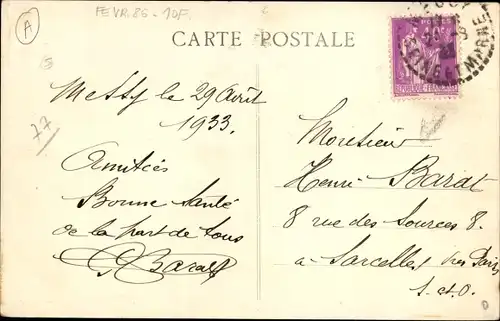 A
FEVR.86 - 10F.
CARTE POSTALE
77
Messy le 29 Août
1933.
Amitiés
Bonne Santé
de la part de tous
G Barat
POSTES
REPUBLIQUE FRANÇAISE
SEINE ET MARNE
Monsieur
Henri Barat
8 rue des Sources 8.
à Sarcelles près Paris
S. et O.